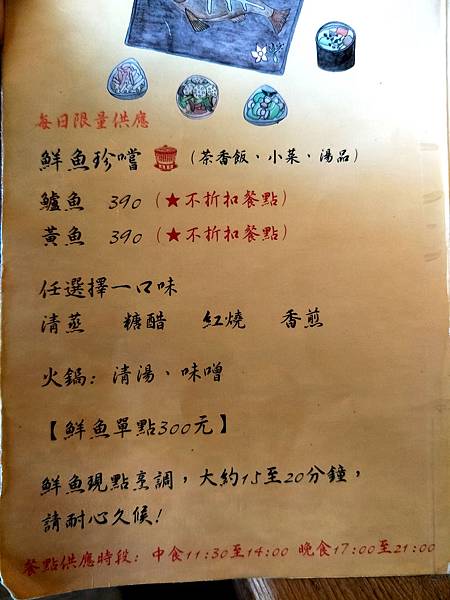 每日限量供應
鮮魚珍嚐 （茶香飯、小菜、湯品）
鱸魚 390（★不折扣餐點）
黃魚 390（★不折扣餐點）
任選擇一口味
清蒸 糖醋 紅燒 香煎
火鍋：清湯、味噌
【鮮魚單點300元】
鮮魚現點烹調，大約15至20分鐘，
請耐心久候！
餐點供應時段：中食11:30至14:00 晚食17:00至21:00